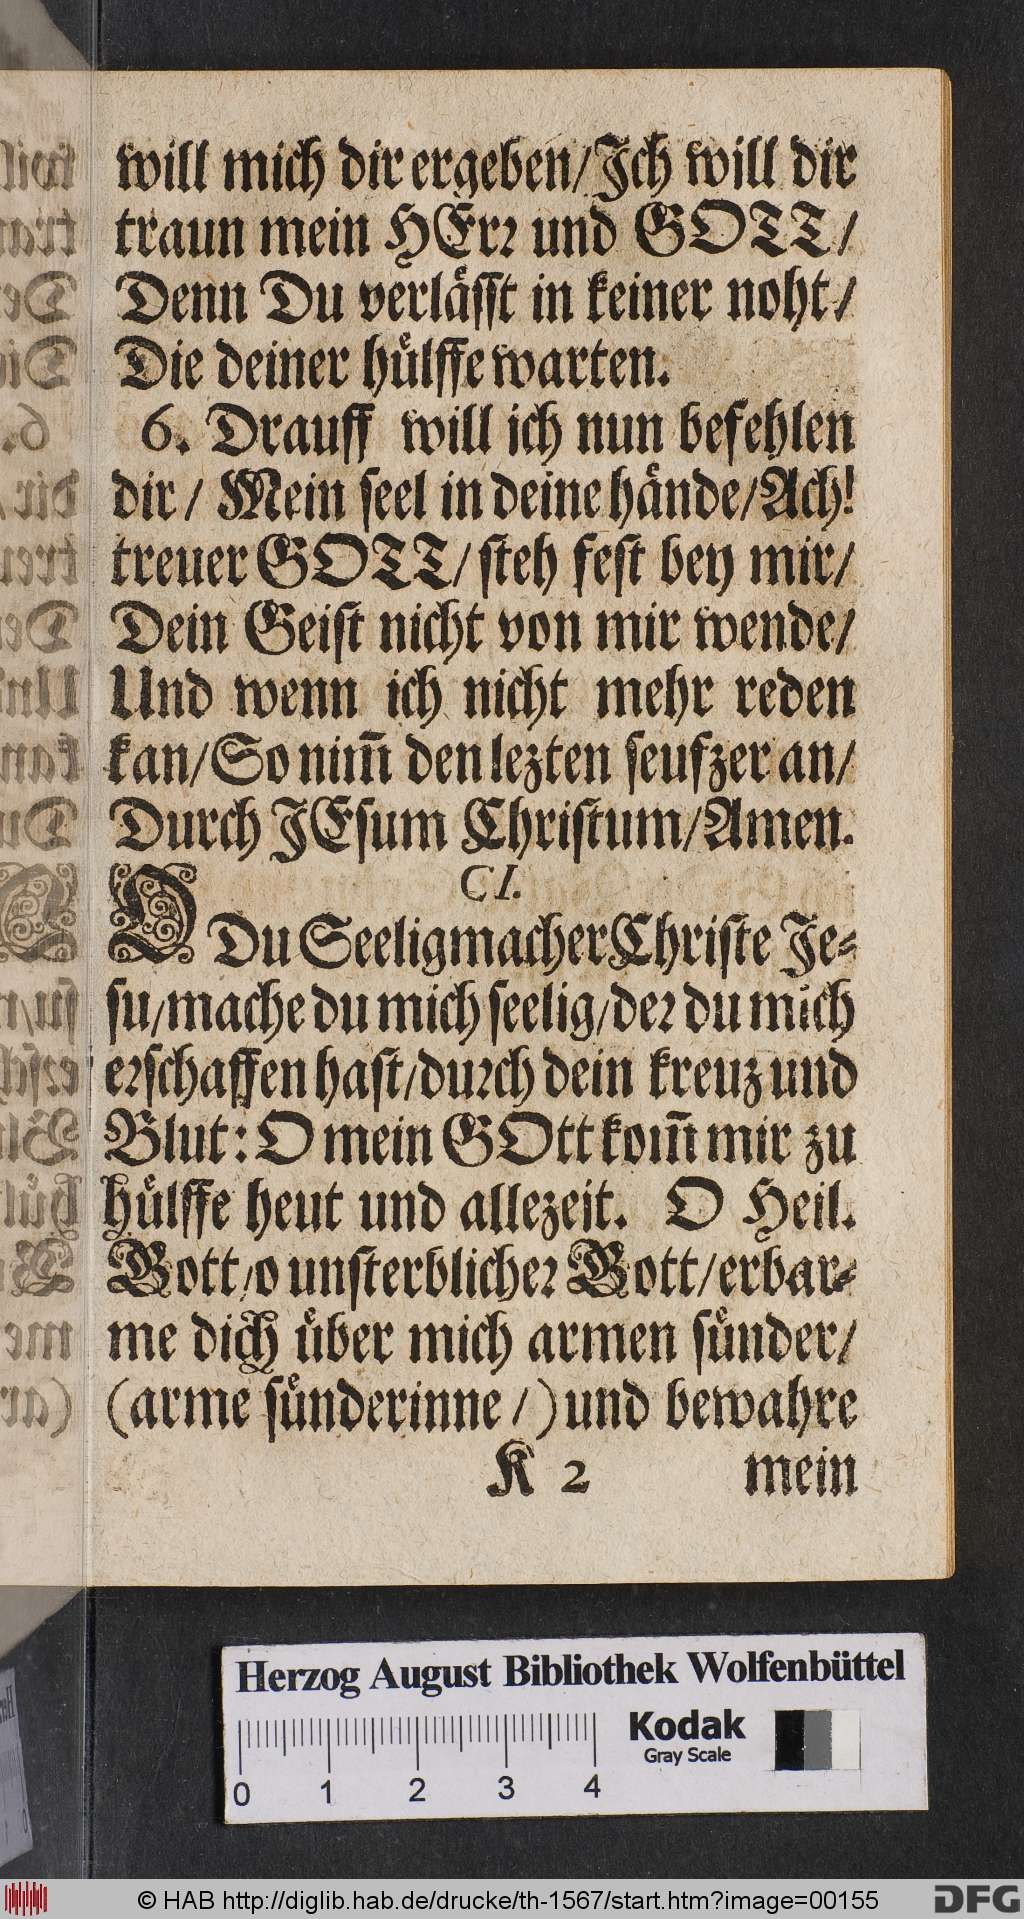 will mich dir ergeben/Ich will dir
traun mein HErꝛ und GOTT/
Denn Du verlåſſt in keiner noht/
Die deiner huͤlffe warten.
6. Drauff will ich nun befehlen
dir/ Mein ſeel in deine haͤnde/Ach!
treuer GOTT/ ſteh feſt bey mir/
Dein Geiſt nicht von mir wende/
Und wenn ich nicht mehr reden
kan/So nim̃ den lezten ſeufzer an/
Durch JEſum Chriſtum/Amen.
CI.
O Du Seeligmacher Chriſte Je-
ſu/mache du mich ſeelig/deꝛ du mich
eꝛſchaffen haſt/duꝛch dein kreuz und
Blut: O mein GOtt kom̃ mir zu
huͤlffe heut und allezeit. O Heil.
Gott/o unſterblicheꝛ Gott/erbar-
me dich uͤber mich armen ſuͤnder/
(arme ſuͤnderinne/) und bewahre
K 2 mein
Herzog August Bibliothek Wolfenbüttel
Kodak
Gray Scale
0 1 2 3 4
© HAB http://diglib.hab.de/drucke/th-1567/start.htm?image=00155
DFG